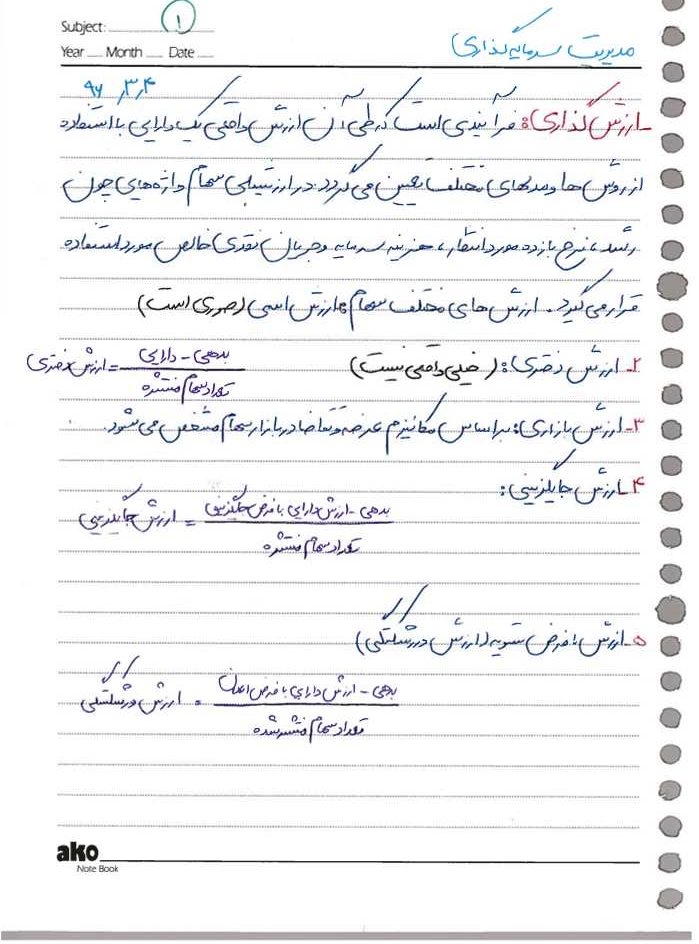 Subject: ①
Year Month Date
مدیریت سرمایه گذاری
۹۶,۳,۴
ـ ارزش گذاری: فرآیندی است که طی آن ارزش واقعی یک دارایی با استفاده
از روش ها و مدلهای مختلف تعیین می گردد. در ارزشیابی سهام واژه هایی چون
رشد، نرخ بازده مورد انتظار، هزینه سرمایه و جریان نقدی خالص مورد استفاده
قرار می گیرد. ارزش های مختلف سهام: ارزش اسمی (صوری است)
۲ـ ارزش دفتری: (خیلی واقعی نیست) ارزش دفتری = بدهی - دارایی
تعداد سهام منتشره
۳ـ ارزش بازاری: براساس مکانیزم عرضه و تقاضا در بازار سهام مشخص می شود.
۴ـ ارزش جایگزینی:
ارزش جایگزینی = بدهی - ارزش دارایی با فرض جایگزینی
تعداد سهام منتشره
۵ـ ارزش با فرض تسویه (ارزش ورشکستگی)
ارزش ورشکستگی = بدهی - ارزش دارایی با فرض
تعداد سهام منتشر شده
ako
Note Book